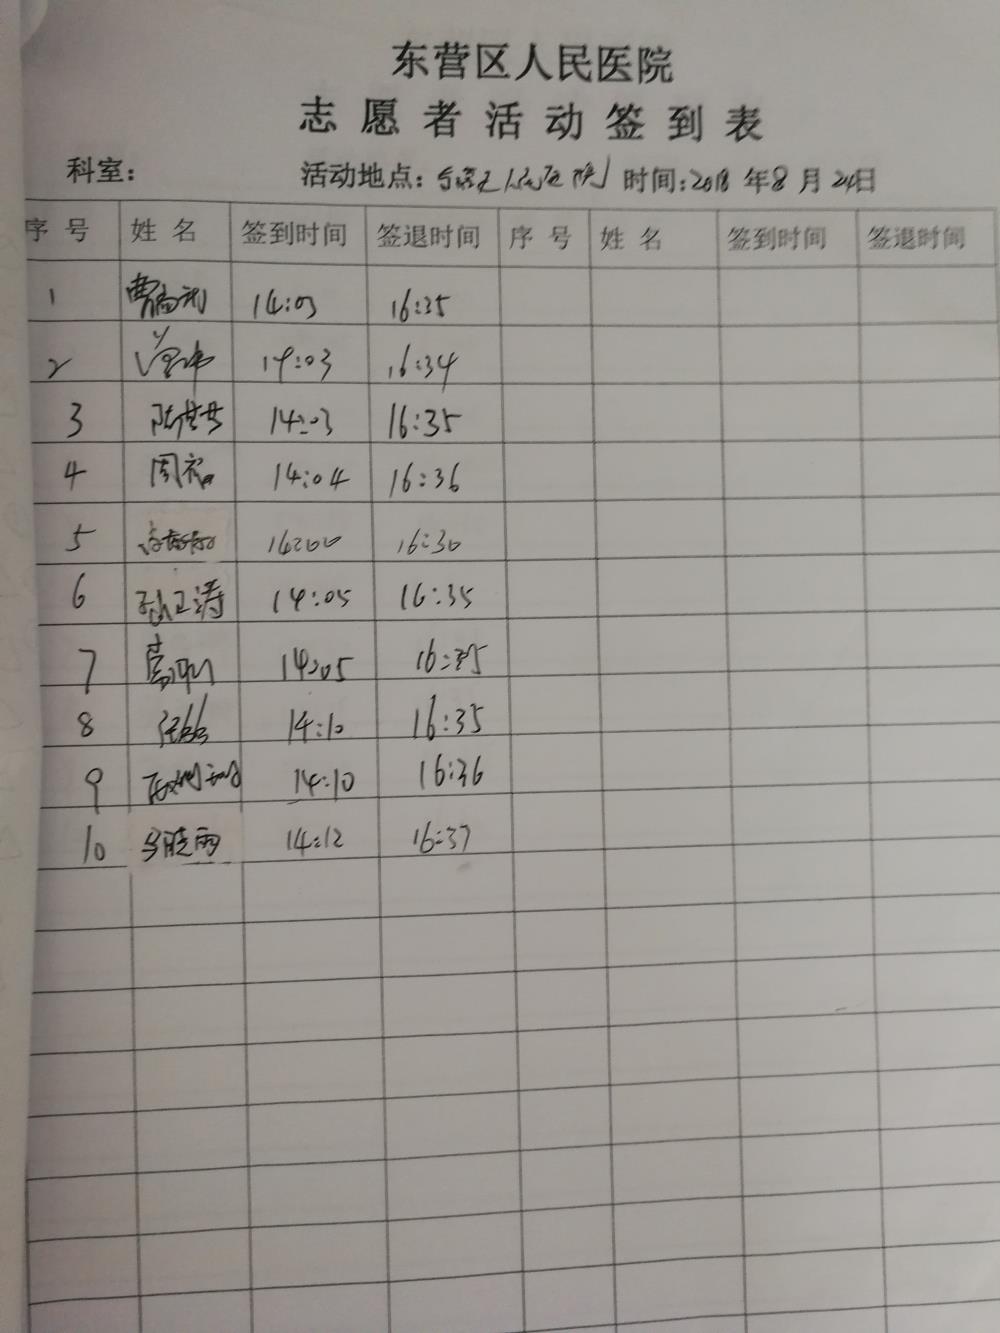 东营区人民医院
志愿者活动签到表
科室： 活动地点：东营区人民医院 时间：2018年8月24日
序号 姓名 签到时间 签退时间 序号 姓名 签到时间 签退时间
1 14:03 16:35
2 14:03 16:34
3 14:03 16:35
4 周 14:04 16:36
5 14:00 16:30
6 孙正涛 14:05 16:35
7 14:05 16:35
8 14:10 16:35
9 14:10 16:36
10 马晓雨 14:12 16:37